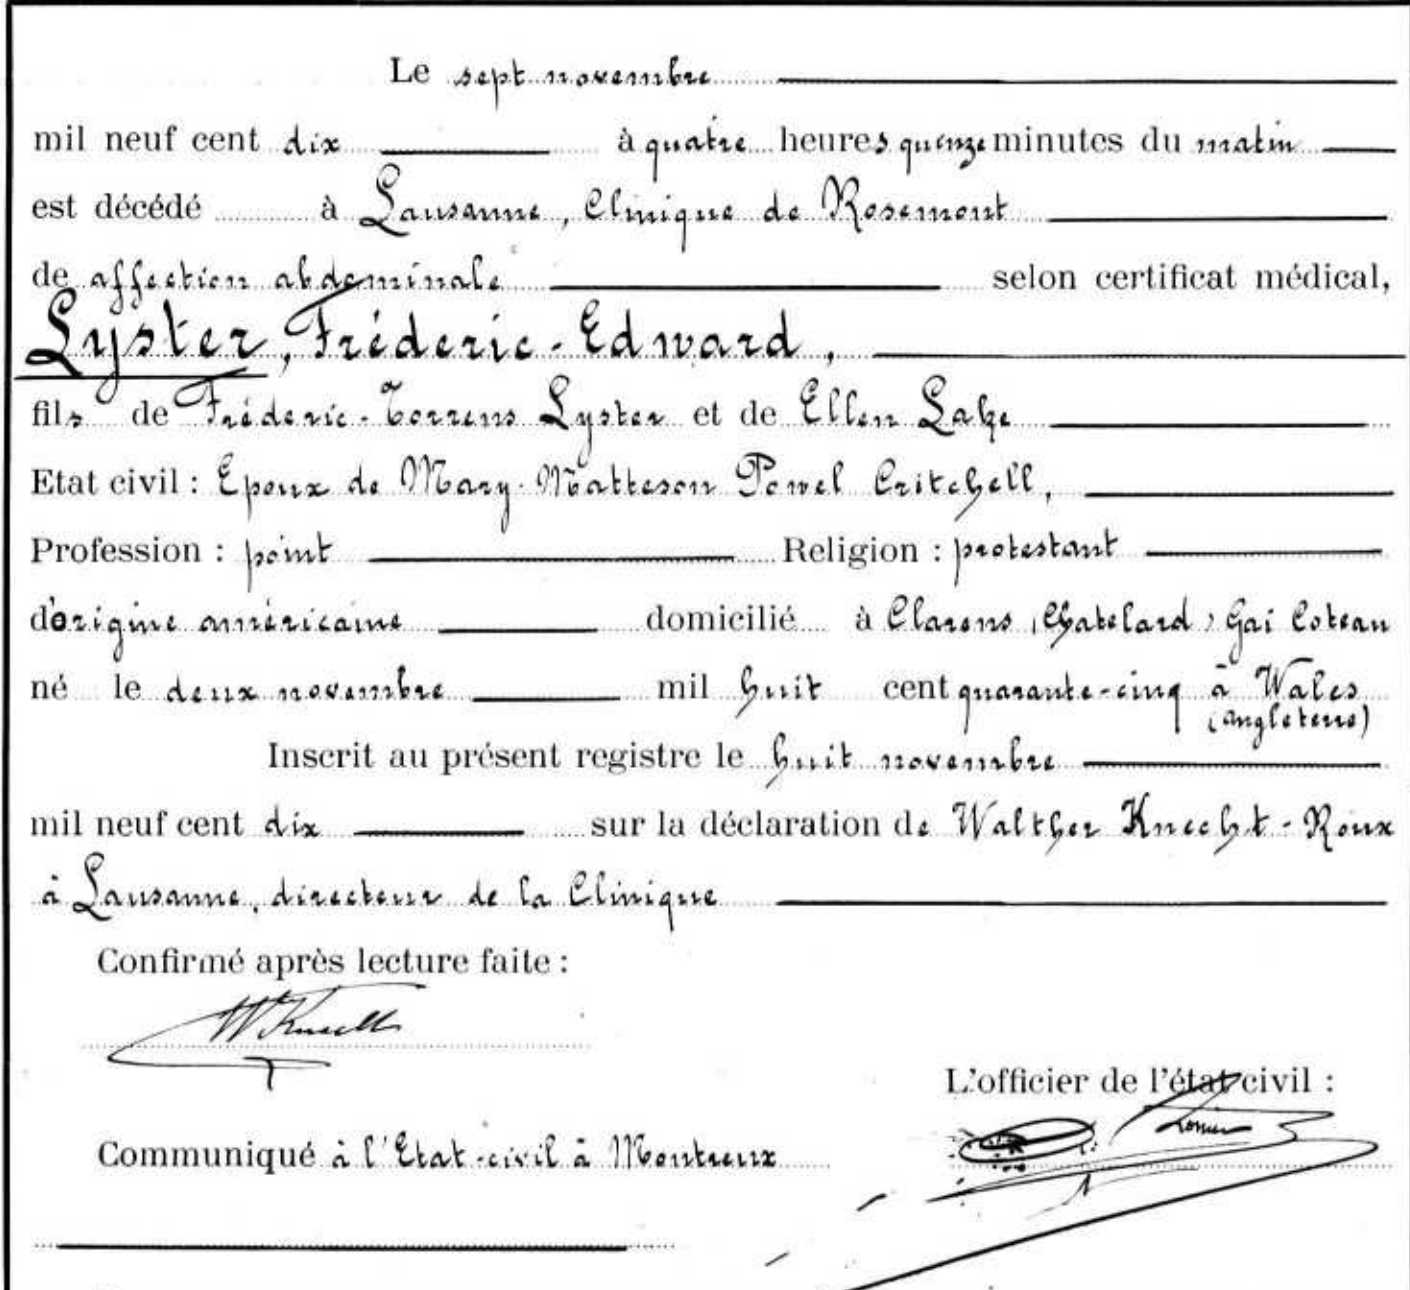 Le sept novembre
mil neuf cent dix à quatre heures quinze minutes du matin
est décédé à Lausanne, Clinique de Rosemont
de affection abdominale selon certificat médical,
Lyster, Fréderic-Edward,
fils de Fréderic-Torrens Lyster et de Ellen Lake
Etat civil : Epoux de Mary-Matteson Powel Critchell,
Profession : point Religion : protestant
d'origine américaine domicilié à Clarens (Chatelard) Gai Coteau
né le deux novembre mil huit cent quarante-cinq à Wales
(Angleterre)
Inscrit au présent registre le huit novembre
mil neuf cent dix sur la déclaration de Walther Knecht-Roux
à Lausanne, directeur de la Clinique
Confirmé après lecture faite :
W Knecht
L'officier de l'état civil :
Communiqué à l'Etat-civil à Montreux